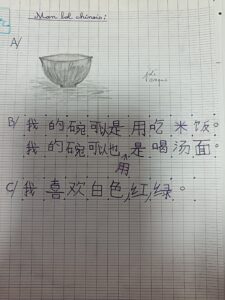 Mon bol chinois:
A/
B/ 我的碗可是用吃米饭。
我的碗可以也是喝汤面。
用
C/ 我喜欢白色,红,绿。